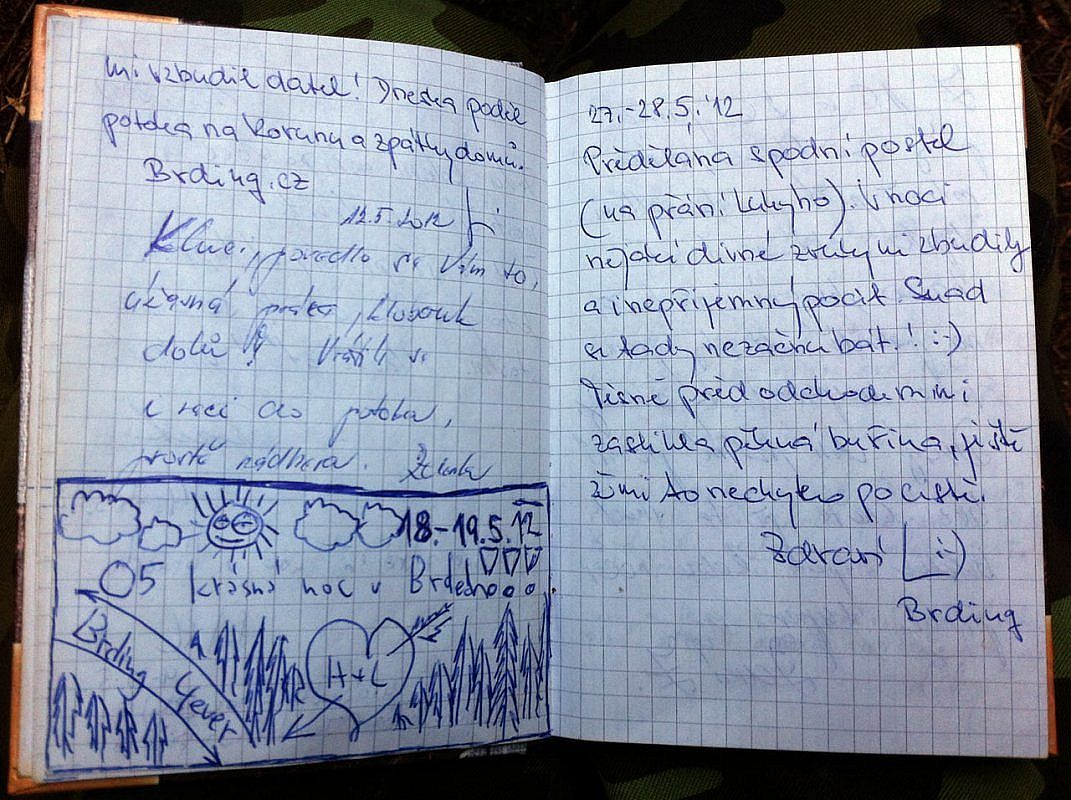 mi vzbudil datel! Dneska podle
potoka na Korunu a zpátky domů.
Brding.cz
12.5 2012
povedlo se Vám to,
úžasná
dolů
a
prostě nádhera.
18.-19.5.12
O5 krásná noc v Brdech
Brding
4ever
H+L
27.-28.5.'12
Předělána spodní postel
(na přání Lukyho). V noci
nějaké divné zvuky mi vzbudily
a i nepříjemný pocit. Snad
se tady nezačnu bát.! :-)
Těsně před odchodem mi
zastihla pěkná buřina, ještě
že mi to nechytlo po cestě.
Zdraví L :-)
Brding